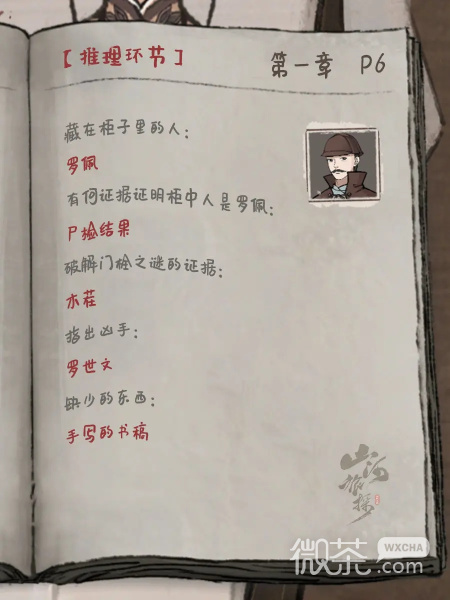 【推理环节】
第一章 P6
藏在柜子里的人：
罗佩
有何证据证明柜中人是罗佩：
尸捡结果
破解门栓之谜的证据：
木茬
指出凶手：
罗世文
缺少的东西：
手写的书稿
山河旅探
微茶
WXCHA
.com